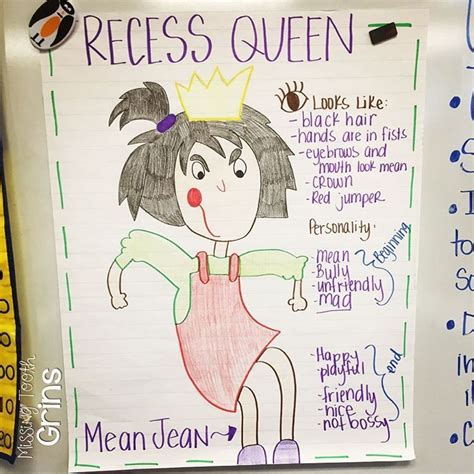 RECESS QUEEN
Looks Like:
- black hair
- hands are in fists
- eyebrows and
mouth look mean
- crown
- Red jumper
Personality:
- mean
- Bully
- unfriendly
- mad
Beginning
- Happy
- playful
- friendly
- nice
- not bossy
end
Mean Jean
Missing Tooth
Grins